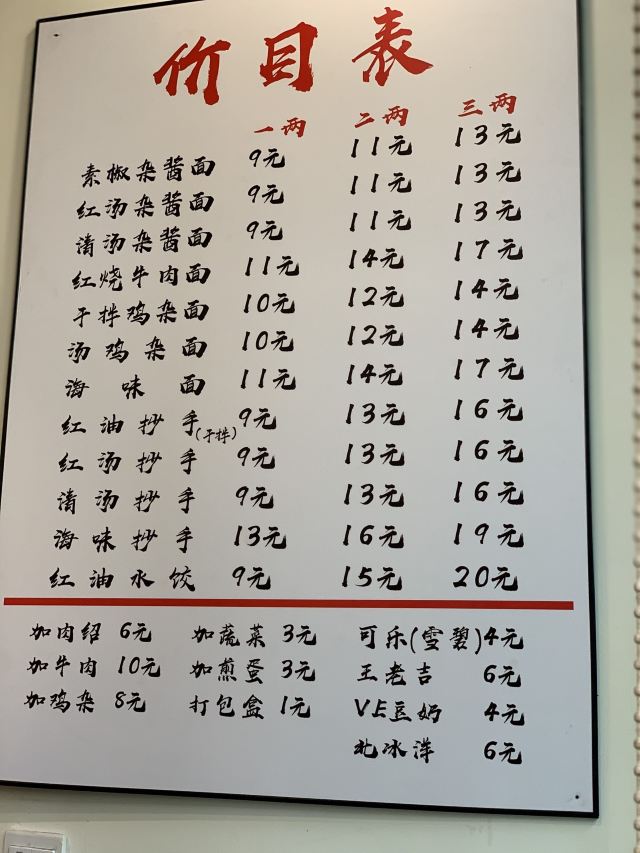 价目表
一两 二两 三两
素椒杂酱面 9元 11元 13元
红汤杂酱面 9元 11元 13元
清汤杂酱面 9元 11元 13元
红烧牛肉面 11元 14元 17元
干拌鸡杂面 10元 12元 14元
汤鸡杂面 10元 12元 14元
海味面 11元 14元 17元
红油抄手(干拌) 9元 13元 16元
红汤抄手 9元 13元 16元
清汤抄手 9元 13元 16元
海味抄手 13元 16元 19元
红油水饺 9元 15元 20元
加肉绍 6元 加蔬菜 3元 可乐(雪碧) 4元
加牛肉 10元 加煎蛋 3元 王老吉 6元
加鸡杂 8元 打包盒 1元 VE豆奶 4元
北冰洋 6元